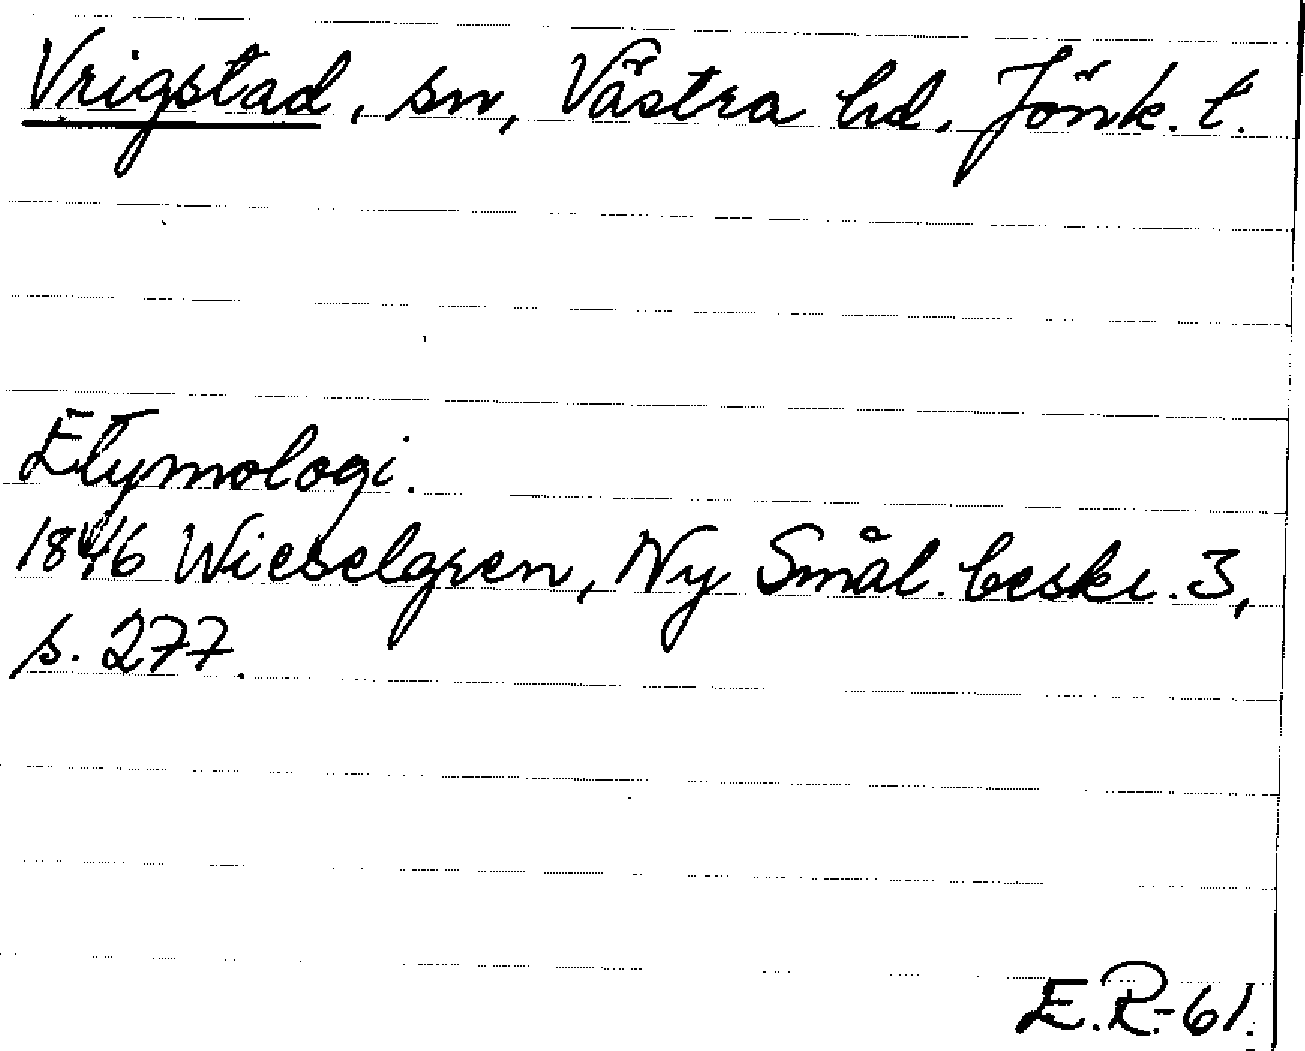 Vrigstad, sn, Västra hd. Jönk. l.
Etymologi.
1846 Wieselgren, Ny Smål. beskr. 3,
s. 277.
E.R.-61.